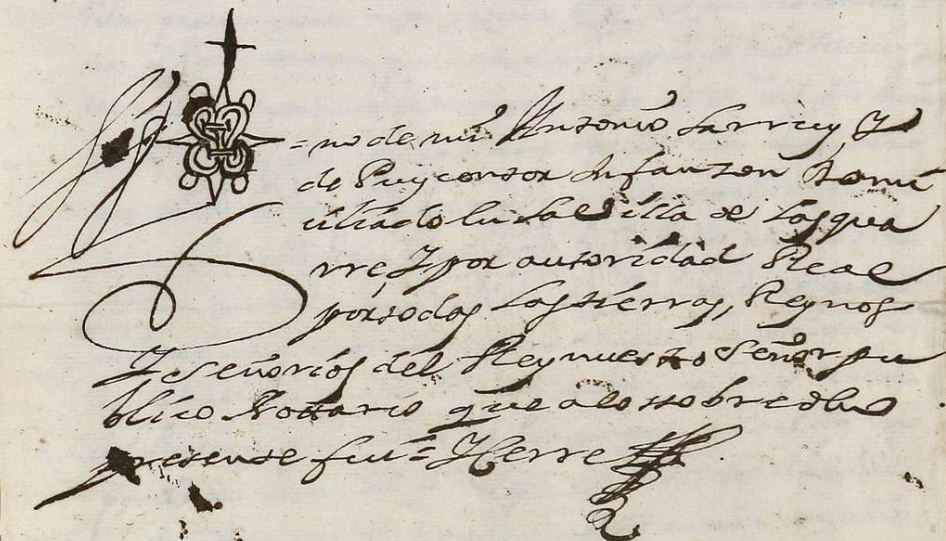 Sig=no de mi Antonio Larruy, Y
de Puycontor Infanzon Domi
ciliado en la Villa de Lasqua
rre Y por autoridad Real
por todas las tierras, Reynos
Y señorios del Rey nuestro señor pu
blico Nottario que a lo sobredho
presente fui = Y Cerre